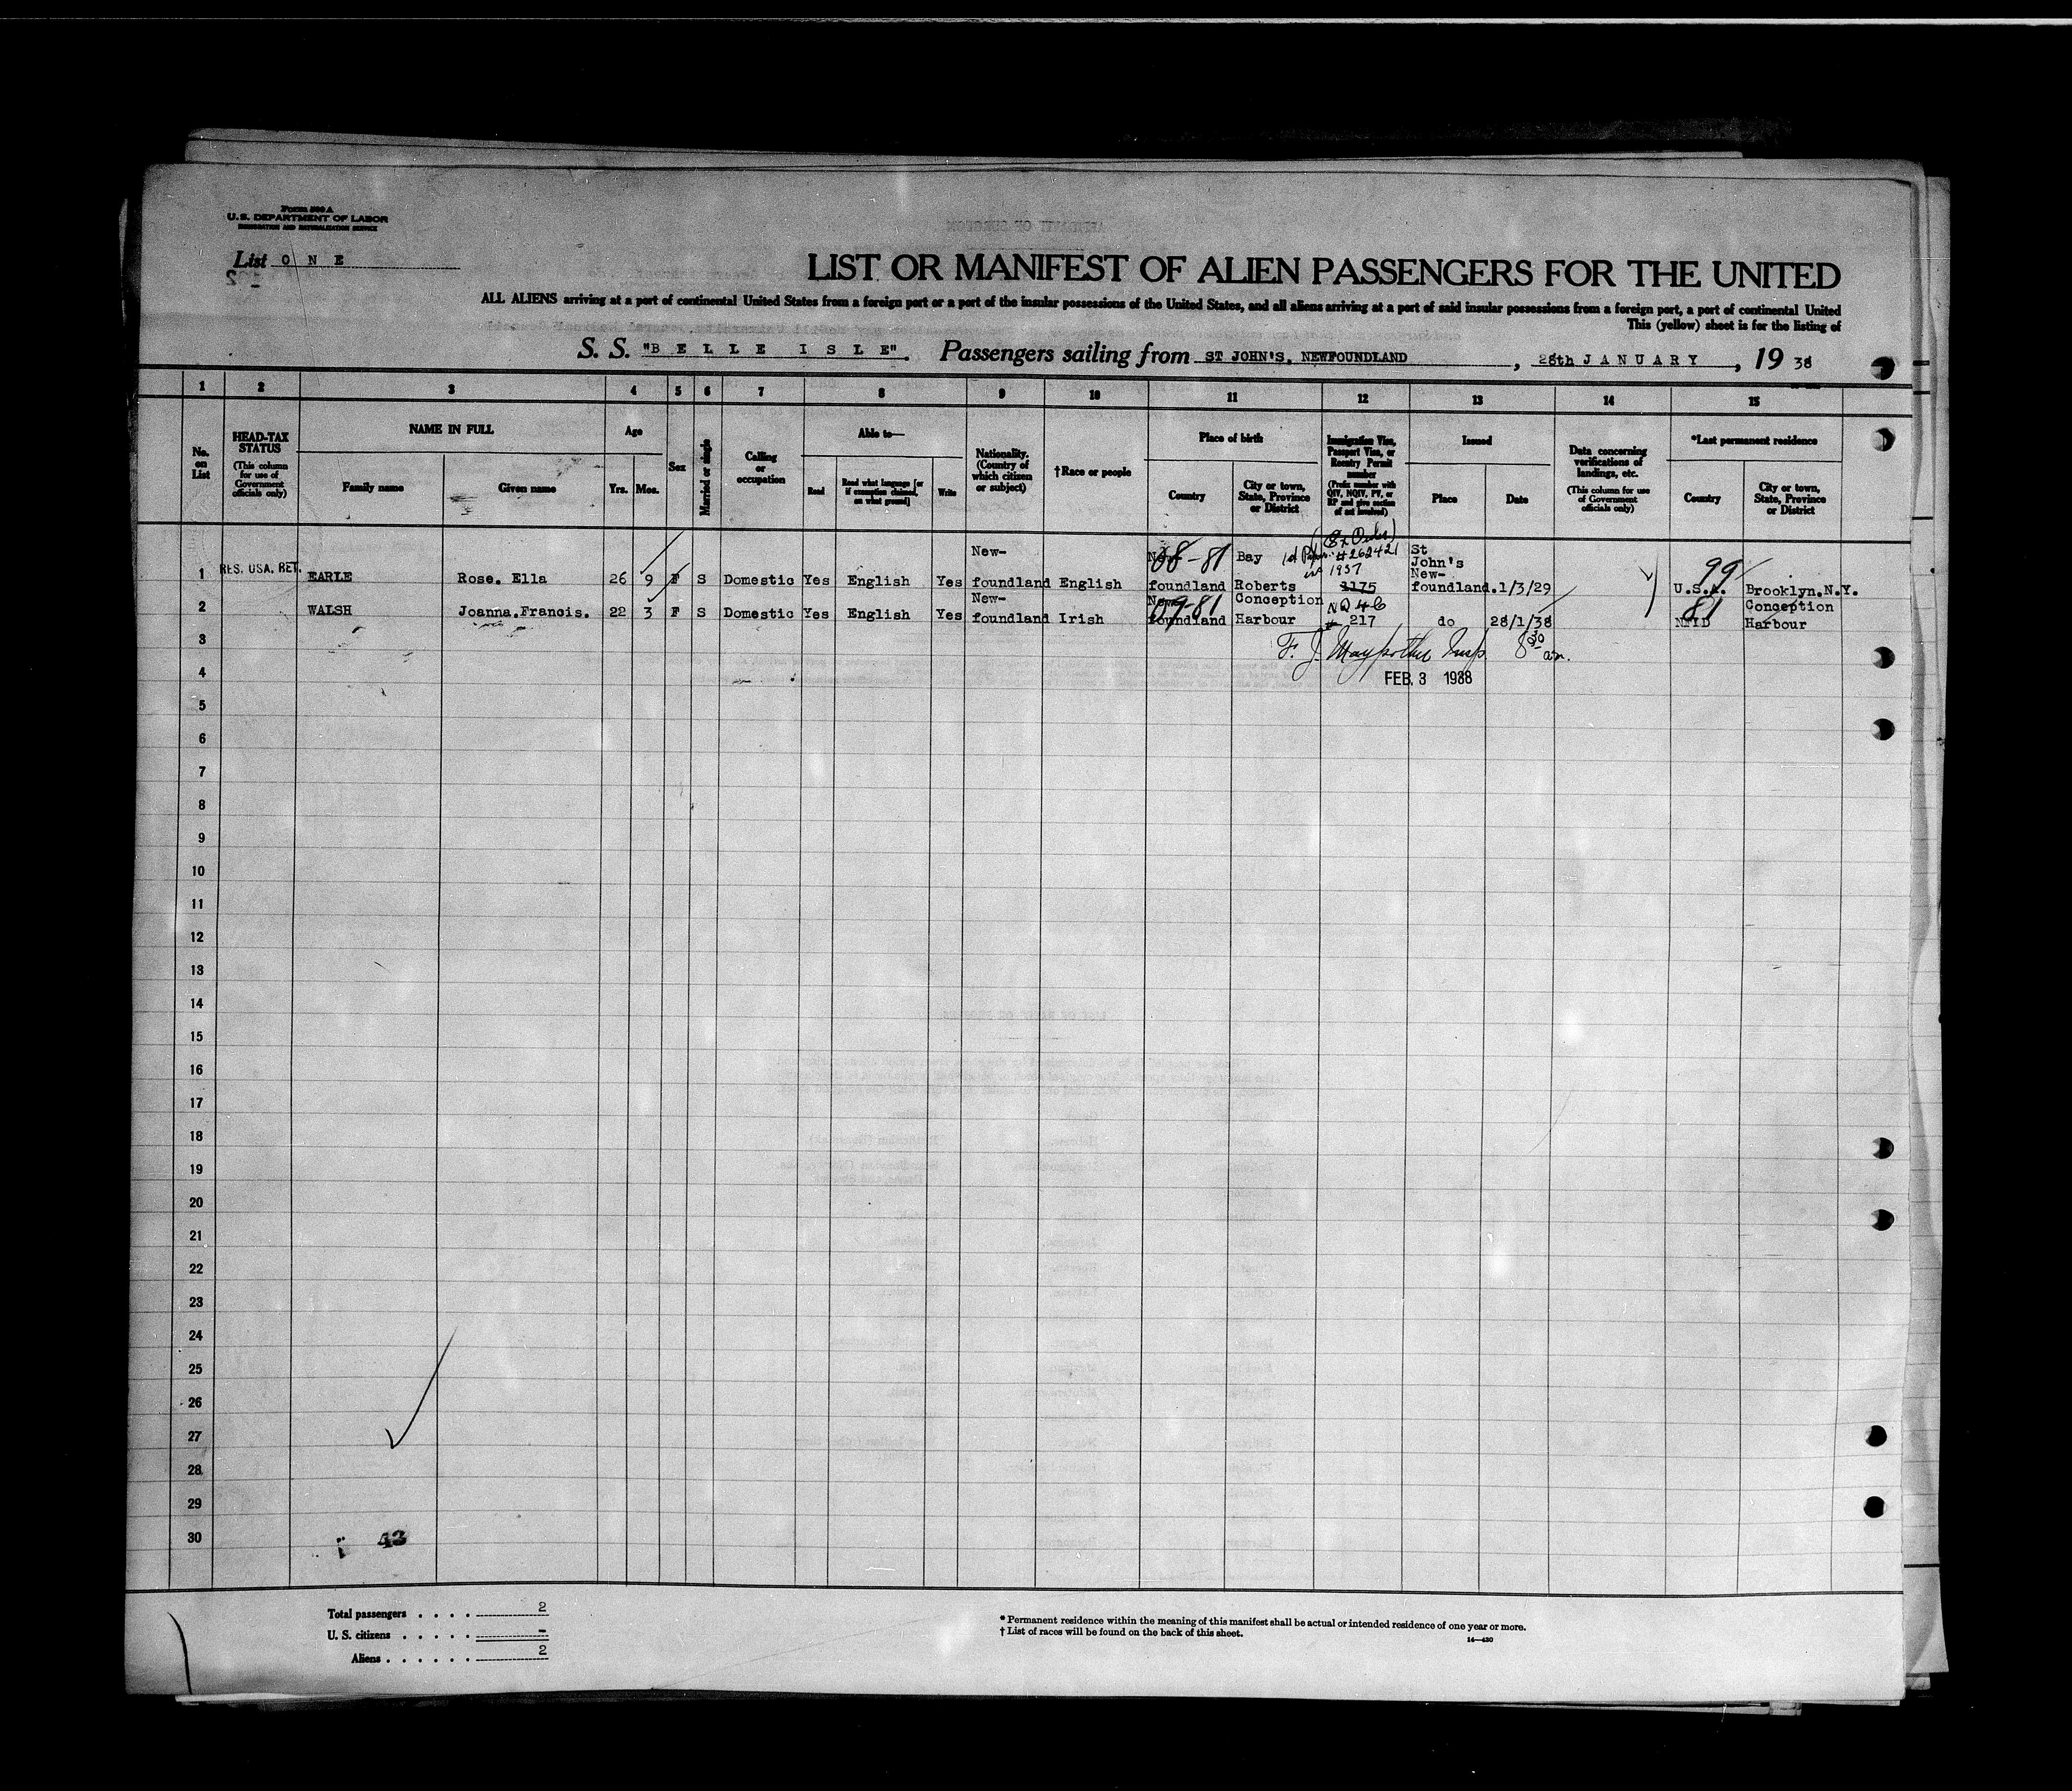 Form 500 A
U.S. DEPARTMENT OF LABOR
IMMIGRATION AND NATURALIZATION SERVICE
List O N E
LIST OR MANIFEST OF ALIEN PASSENGERS FOR THE UNITED
ALL ALIENS arriving at a port of continental United States from a foreign port or a port of the insular possessions of the United States, and all aliens arriving at a port of said insular possessions from a foreign port, a port of continental United
This (yellow) sheet is for the listing of
S. S. "B E L L E I S L E". Passengers sailing from ST JOHN'S, NEWFOUNDLAND, 28th J A N U A R Y, 19 38
1 2 3 4 5 6 7 8 9 10 11 12 13 14 15
No. on List
HEAD-TAX STATUS (This column for use of Government officials only)
NAME IN FULL
Family name
Given name
Age
Yrs. Mos.
Sex
Married or single
Calling or occupation
Able to—
Read
Read what language [or if exemption claimed, on what ground]
Write
Nationality. (Country of which citizen or subject)
†Race or people
Place of birth
Country
City or town, State, Province or District
Immigration Visa, Passport Visa, or Reentry Permit number
(Prefix number with QIV, NQIV, PV, or RP and give section of act involved)
Issued
Place
Date
Data concerning verifications of landings, etc.
(This column for use of Government officials only)
*Last permanent residence
Country
City or town, State, Province or District
1 RES. USA. RET. EARLE Rose. Ella 26 9 F S Domestic Yes English Yes New-foundland English foundland 88-81 Bay Roberts #262421 1937 3175 St John's New-foundland. 1/3/29 U.S.A. 99 Brooklyn.N.Y.
2 WALSH Joanna.Francis. 22 3 F S Domestic Yes English Yes New-foundland Irish foundland 09-81 Conception Harbour # 217 do 28/1/38 NFLD 81 Conception Harbour
3
F. J. Insp. 8 30 am.
4
FEB. 3 1938
5
6
7
8
9
10
11
12
13
14
15
16
17
18
19
20
21
22
23
24
25
26
27
28
29
30
43
Total passengers . . . . 2
U. S. citizens . . . . . –
Aliens . . . . . . 2
* Permanent residence within the meaning of this manifest shall be actual or intended residence of one year or more.
† List of races will be found on the back of this sheet.
14—430